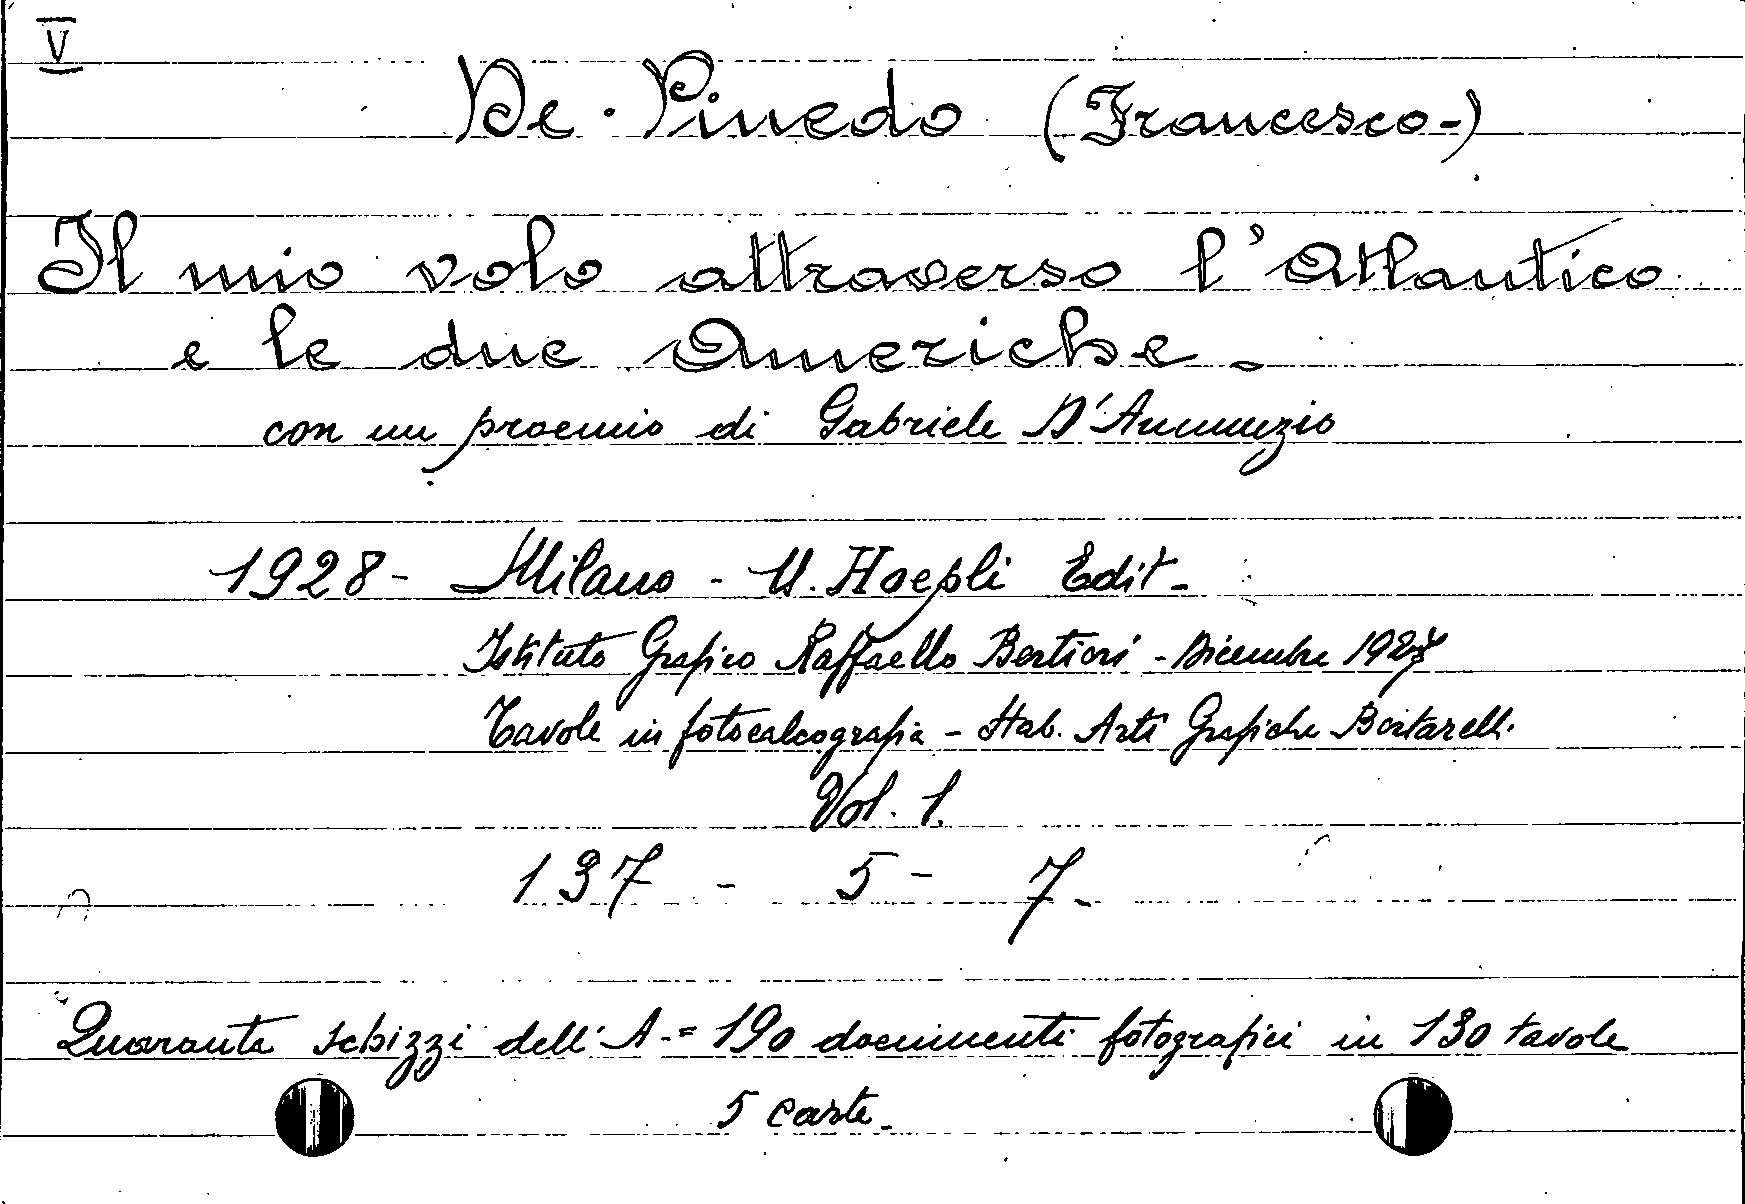 V
De Pinedo (Francesco-)
Il mio volo attraverso l'Atlantico
e le due Americhe -
con un proemio di Gabriele D'Annunzio
1928 - Milano - U. Hoepli Edit -
Istituto Grafico Raffaello Bertieri - Dicembre 1927
Tavole in fotocalcografia - Stab. Arti Grafiche Bertarelli
Vol. 1.
137 - 5 - 7 -
Quaranta schizzi dell'A. = 190 documenti fotografici in 130 tavole
5 carte -